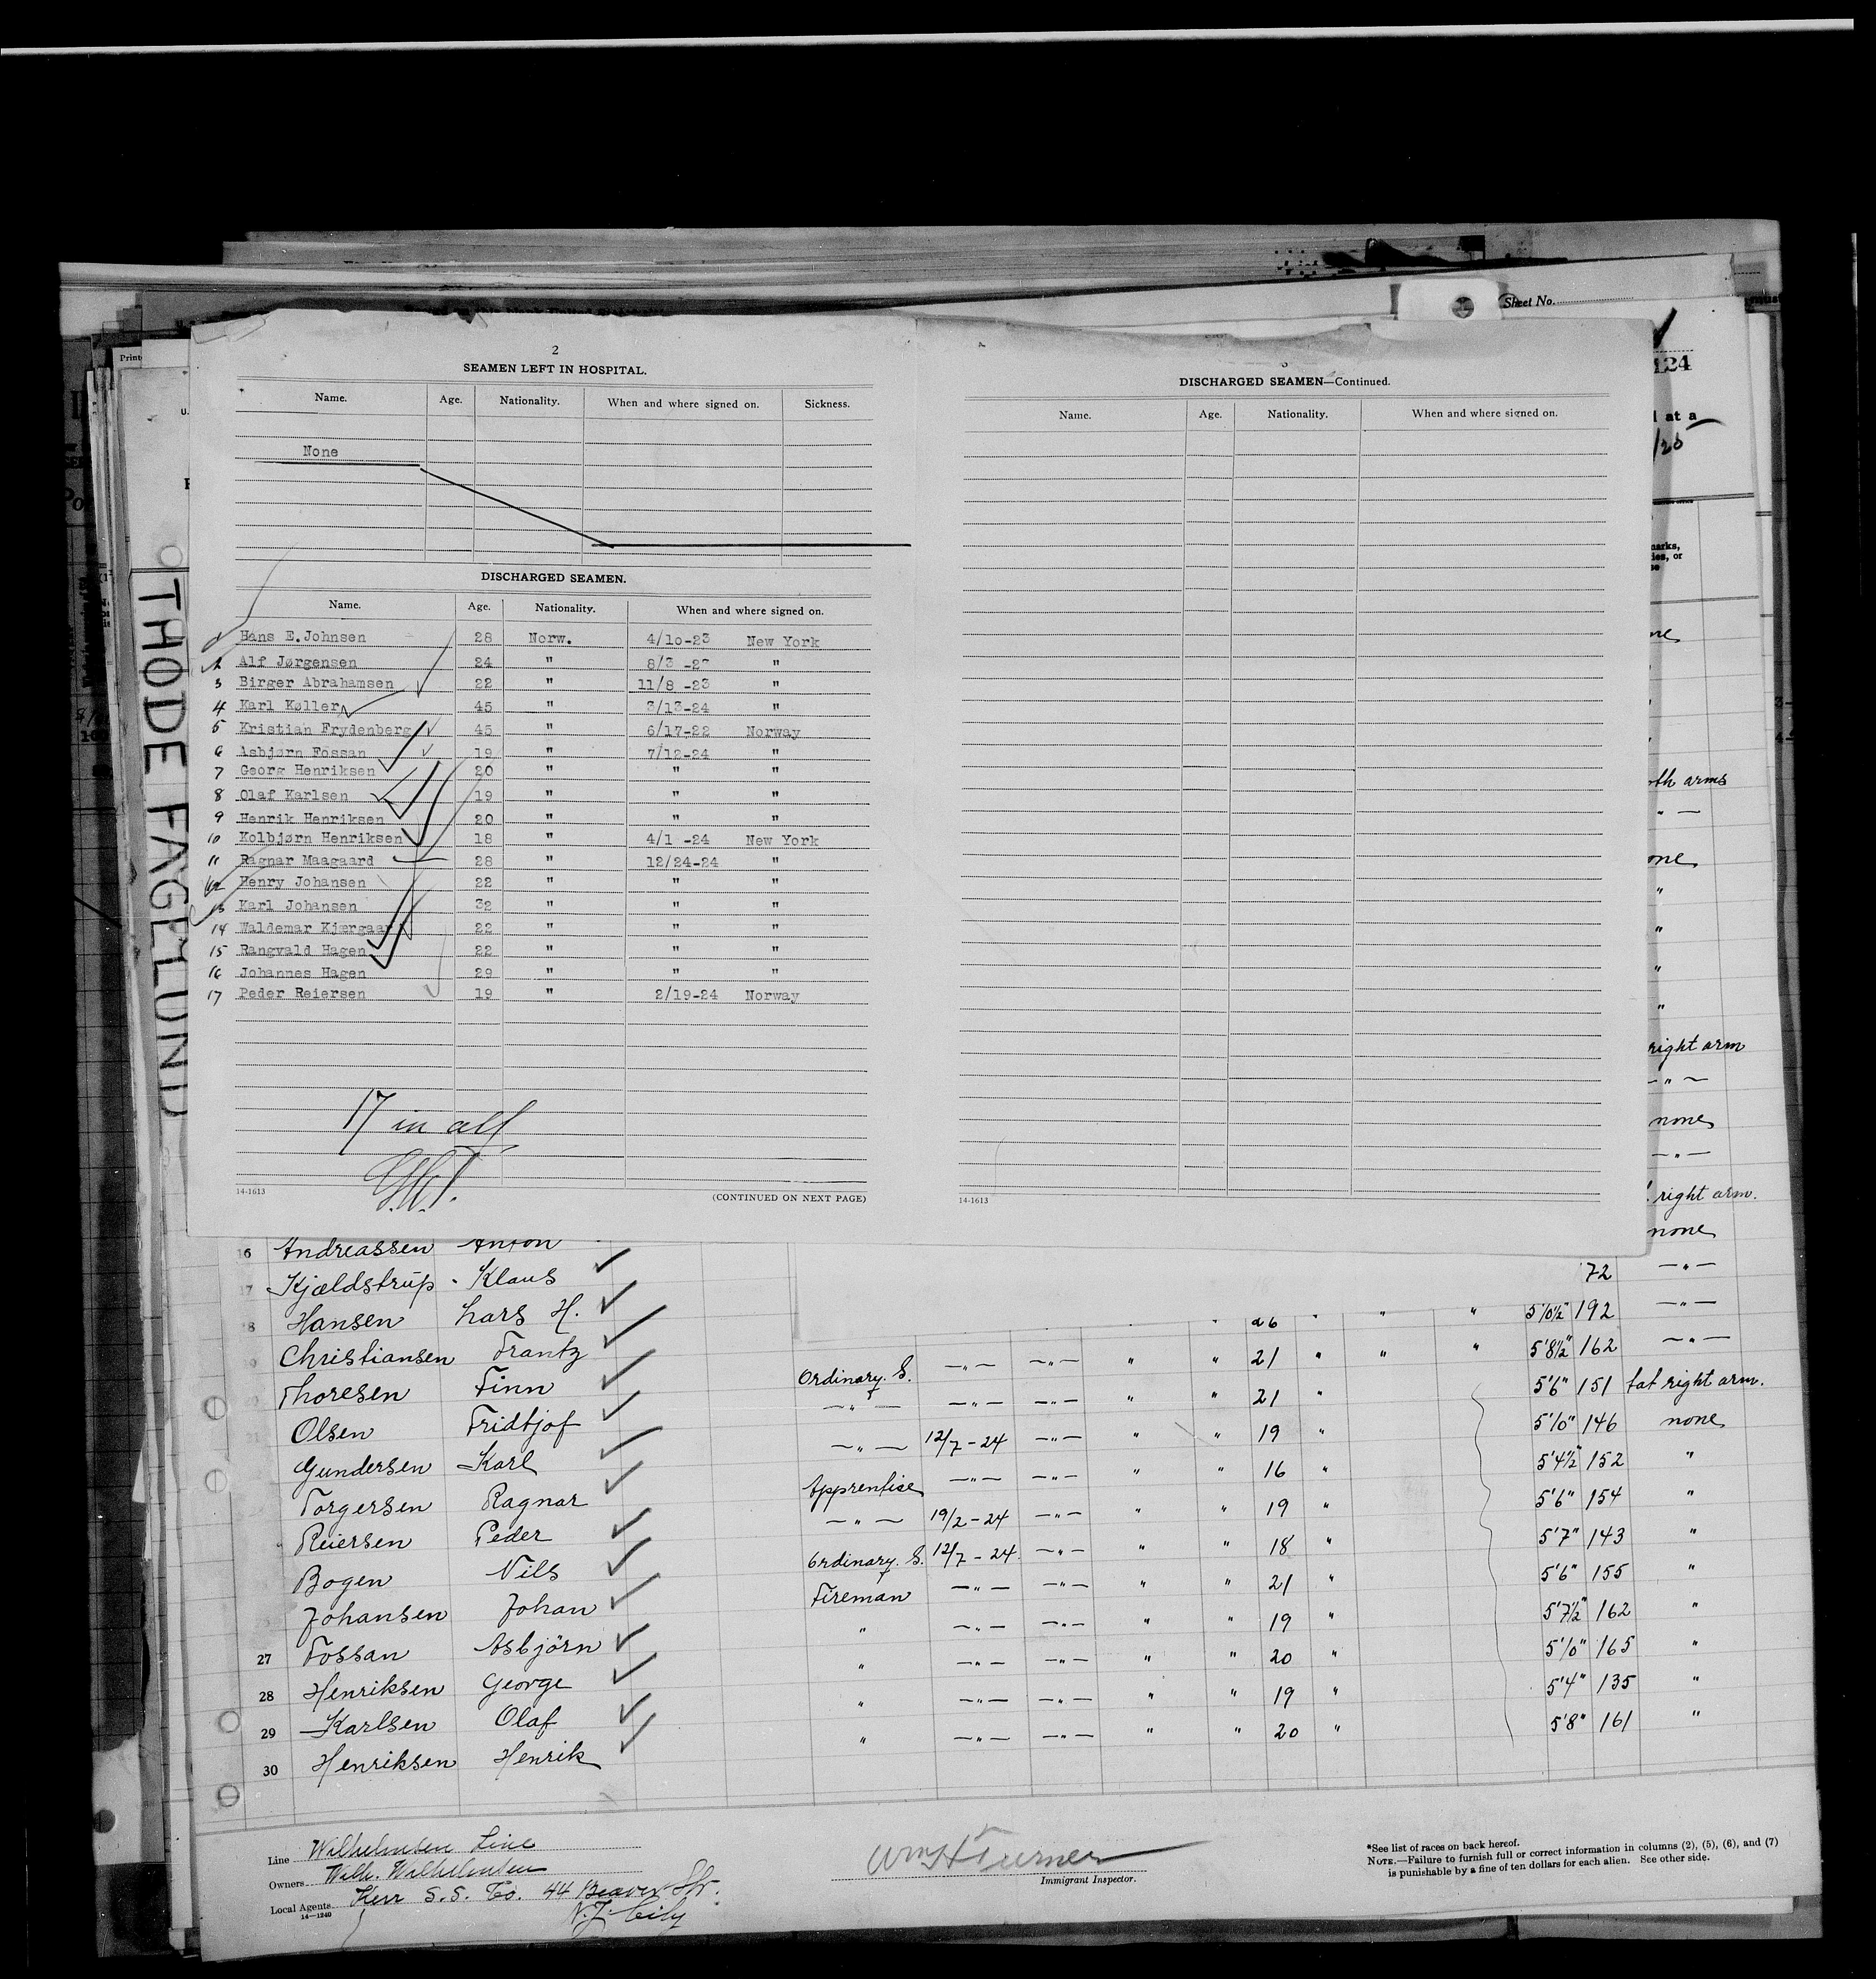 Sheet No.
Print
124
at a
/26
THODE FAGELUND
2
SEAMEN LEFT IN HOSPITAL.
Name. Age. Nationality. When and where signed on. Sickness.
None
DISCHARGED SEAMEN.
Name. Age. Nationality. When and where signed on.
Hans E. Johnsen 28 Norw. 4/10-23 New York
2 Alf Jørgensen 24 " 8/3 -23 "
3 Birger Abrahamsen 22 " 11/8 -23 "
4 Karl Køller 45 " 3/13-24 "
5 Kristian Frydenberg 45 " 6/17-22 Norway
6 Asbjørn Fossan 19 " 7/12-24 "
7 Georg Henriksen 20 " " "
8 Olaf Karlsen 19 " " "
9 Henrik Henriksen 20 " " "
10 Kolbjørn Henriksen 18 " 4/1 -24 New York
11 Ragnar Maagaard 28 " 12/24-24 "
12 Henry Johansen 22 " " "
13 Karl Johansen 32 " " "
14 Waldemar Kjærgaar 22 " " "
15 Rangvald Hagen 22 " " "
16 Johannes Hagen 29 " " "
17 Peder Reiersen 19 " 2/19-24 Norway
17 in all
14-1613 (CONTINUED ON NEXT PAGE)
DISCHARGED SEAMEN—Continued.
Name. Age. Nationality. When and where signed on.
14-1613
arms
one
"
"
"
"
right arm
— " —
none
— " —
right arm.
none
16 Andreassen Anton
17 Kjældstrup Klaus 72 — " —
18 Hansen Lars H. 26 " " " 5'10½" 192 — " —
Christiansen Frantz Ordinary S. — " — — " — " " 21 " " " 5'8½" 162 — " —
Thoresen Finn — " — — " — — " — " " 21 " 5'6" 151 tat right arm.
Olsen Fridtjof — " — 12/7-24 — " — " " 19 " 5'10" 146 none
Gundersen Karl Apprentise — " — — " — " " 16 " 5'4½" 152 "
Torgersen Ragnar — " — 19/2-24 — " — " " 19 " 5'6" 154 "
Reiersen Peder Ordinary S. 12/7-24 — " — " " 18 " 5'7" 143 "
Bogen Nils Fireman — " — — " — " " 21 " 5'6" 155 "
Johansen Johan " — " — — " — " " 19 " 5'7½" 162 "
27 Fossan Asbjörn " — " — — " — " " 20 " 5'10" 165 "
28 Henriksen George " — " — — " — " " 19 " 5'4" 135 "
29 Karlsen Olaf " — " — — " — " " 20 " 5'8" 161 "
30 Henriksen Henrik
Line Wilhelmsen Line
Owners Wilh. Wilhelmsen
Local Agents Kerr S.S. Co. 44 Beaver Str.
14—1240
N.Y. City
Wm H Turner
Immigrant Inspector.
*See list of races on back hereof.
NOTE.—Failure to furnish full or correct information in columns (2), (5), (6), and (7)
is punishable by a fine of ten dollars for each alien. See other side.